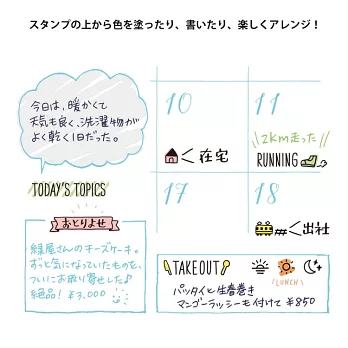 スタンプの上から色を塗ったり、書いたり、楽しくアレンジ！
今日は、暖かくて
天気も良く、洗濯物が
よく乾く1日だった。
10
在宅
11
2km走った
RUNNING
TODAY'S TOPICS
17
18
出社
おとりよせ
緑屋さんのチーズケーキ。
ずっと気になっていたものを、
ついにお取り寄せした♪
絶品！ ¥3,000
TAKE OUT
LUNCH
パッタイと生春巻き
マンゴーラッシーも付けて ¥850